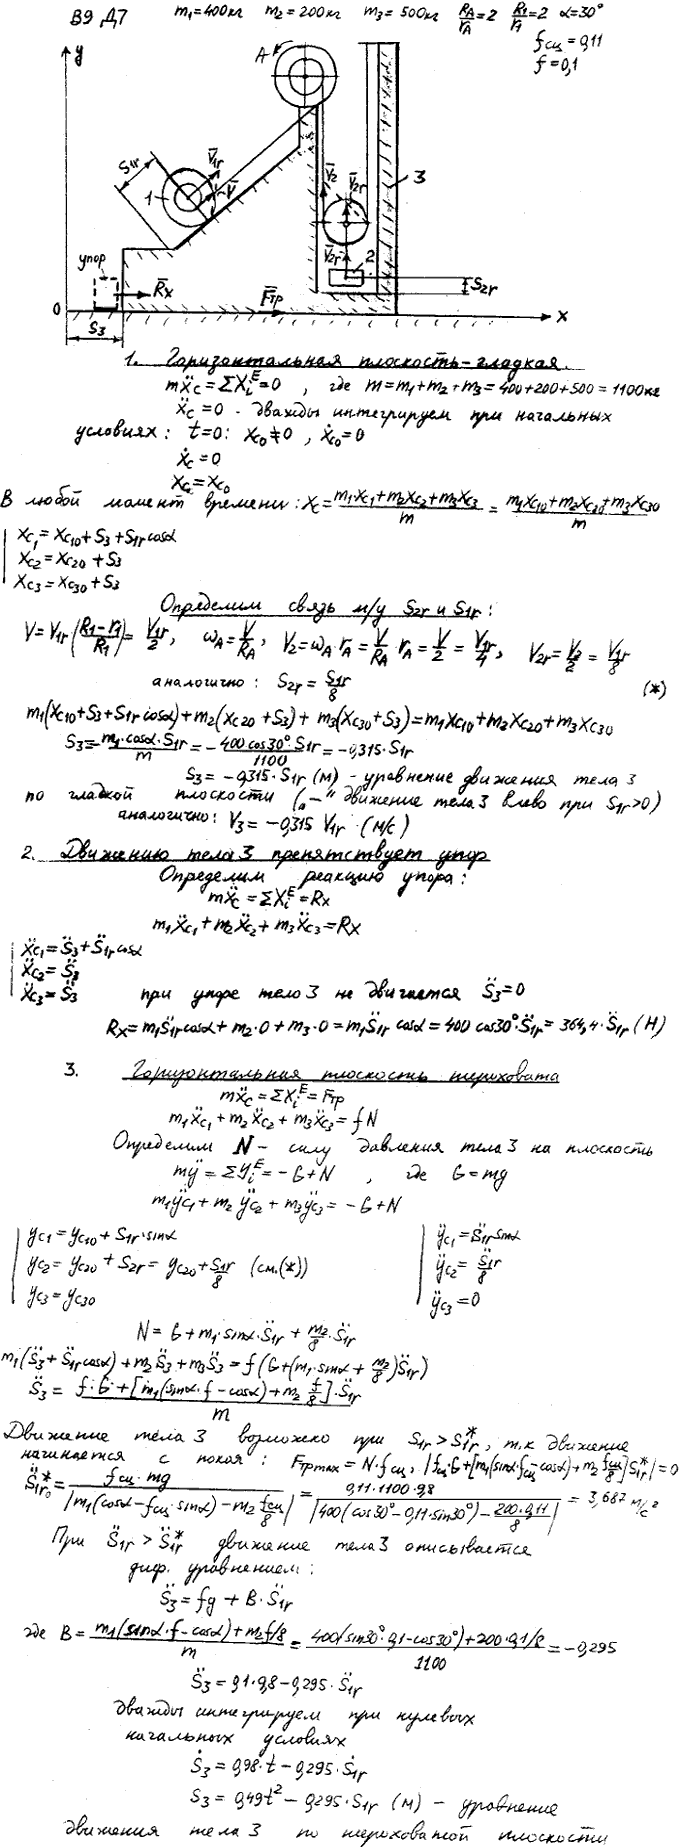 В9 Д7 m₁=400кг m₂=200кг m₃=500кг R_A/r_A=2 R₁/r₁=2 α=30°
f_сц=0,11
f=0,1
y
A
S₁r
V̄₁r
V̄
1
V̄₂
V̄₂r
3
упор
R̄x
V̄₂r
2
S₂r
0
F̄тр
x
S₃
1. Горизонтальная плоскость-гладкая.
mẍ_c = ΣXᵢᴱ=0 , где m=m₁+m₂+m₃=400+200+500=1100кг
ẍ_c=0 - дважды интегрируем при начальных
условиях: t=0: x_c₀≠0 , ẋ_c₀=0
ẋ_c=0
x_c=x_c₀
В любой момент времени: x_c=(m₁x_c₁+m₂x_c₂+m₃x_c₃)/m = (m₁x_c₁₀+m₂x_c₂₀+m₃x_c₃₀)/m
x_c₁=x_c₁₀+S₃+S₁r cosα
x_c₂=x_c₂₀+S₃
x_c₃=x_c₃₀+S₃
Определим связь м/у S₂r и S₁r:
V=V₁r((R₁-r₁)/R₁)=V₁r/2, ω_A=V/R_A, V₂=ω_A·r_A=V/R_A·r_A=V/2=V₁r/4, V₂r=V₂/2=V₁r/8
аналогично: S₂r=S₁r/8 (*)
m₁(x_c₁₀+S₃+S₁r cosα)+m₂(x_c₂₀+S₃)+m₃(x_c₃₀+S₃)=m₁x_c₁₀+m₂x_c₂₀+m₃x_c₃₀
S₃=-m₁·cosα·S₁r/m=-400cos30°·S₁r/1100=-0,315·S₁r
S₃=-0,315·S₁r (м) - уравнение движения тела 3
по гладкой плоскости („-“ движение тела 3 влево при S₁r>0)
аналогично: V₃=-0,315 V₁r (м/с)
2. Движению тела 3 препятствует упор
Определим реакцию упора:
mẍ_c=ΣXᵢᴱ=Rx
m₁ẍ_c₁+m₂ẍ_c₂+m₃ẍ_c₃=Rx
ẍ_c₁=S̈₃+S̈₁r cosα
ẍ_c₂=S̈₃
ẍ_c₃=S̈₃ при упоре тело 3 не двигается S̈₃=0
Rx=m₁S̈₁r cosα+m₂·0+m₃·0=m₁S̈₁r cosα=400cos30°·S̈₁r=364,4·S̈₁r (Н)
3. Горизонтальная плоскость шероховата
mẍ_c=ΣXᵢᴱ=Fтр
m₁ẍ_c₁+m₂ẍ_c₂+m₃ẍ_c₃=fN
Определим N- силу давления тела 3 на плоскость
mÿ=ΣYᵢᴱ=-G+N , где G=mg
m₁ÿ_c₁+m₂ÿ_c₂+m₃ÿ_c₃=-G+N
y_c₁=y_c₁₀+S₁r·sinα ÿ_c₁=S̈₁r sinα
y_c₂=y_c₂₀+S₂r=y_c₂₀+S₁r/8 (см.(*)) ÿ_c₂=S̈₁r/8
y_c₃=y_c₃₀ ÿ_c₃=0
N=G+m₁·sinα·S̈₁r+m₂/8·S̈₁r
m₁(S̈₃+S̈₁r cosα)+m₂S̈₃+m₃S̈₃=f(G+(m₁·sinα+m₂/8)S̈₁r)
S̈₃=(f·G+[m₁(sinα·f-cosα)+m₂ f/8]·S̈₁r)/m
Движение тела 3 возможно при S̈₁r>S̈₁r*, т.к движение
начинается с покоя: Fтр max=N·f_сц, |f_сц·G+[m₁(sinα·f_сц-cosα)+m₂ f_сц/8]S̈₁r*|=0
S̈₁r₀*=f_сц·mg/|m₁(cosα-f_сц·sinα)-m₂ f_сц/8|=0,11·1100·9,8/|400(cos30°-0,11·sin30°)-200·0,11/8|=3,687 м/с²
При S̈₁r>S̈₁r* движение тела 3 описывается
диф. уравнением:
S̈₃=fg+B·S̈₁r
где B=(m₁(sinα·f-cosα)+m₂f/8)/m=(400(sin30°·0,1-cos30°)+200·0,1/8)/1100=-0,295
S̈₃=0,1·9,8-0,295·S̈₁r
дважды интегрируем при нулевых
начальных условиях
Ṡ₃=0,98·t-0,295·Ṡ₁r
S₃=0,49t²-0,295·S₁r (м) - уровнение
движения тела 3 по шероховатой плоскости